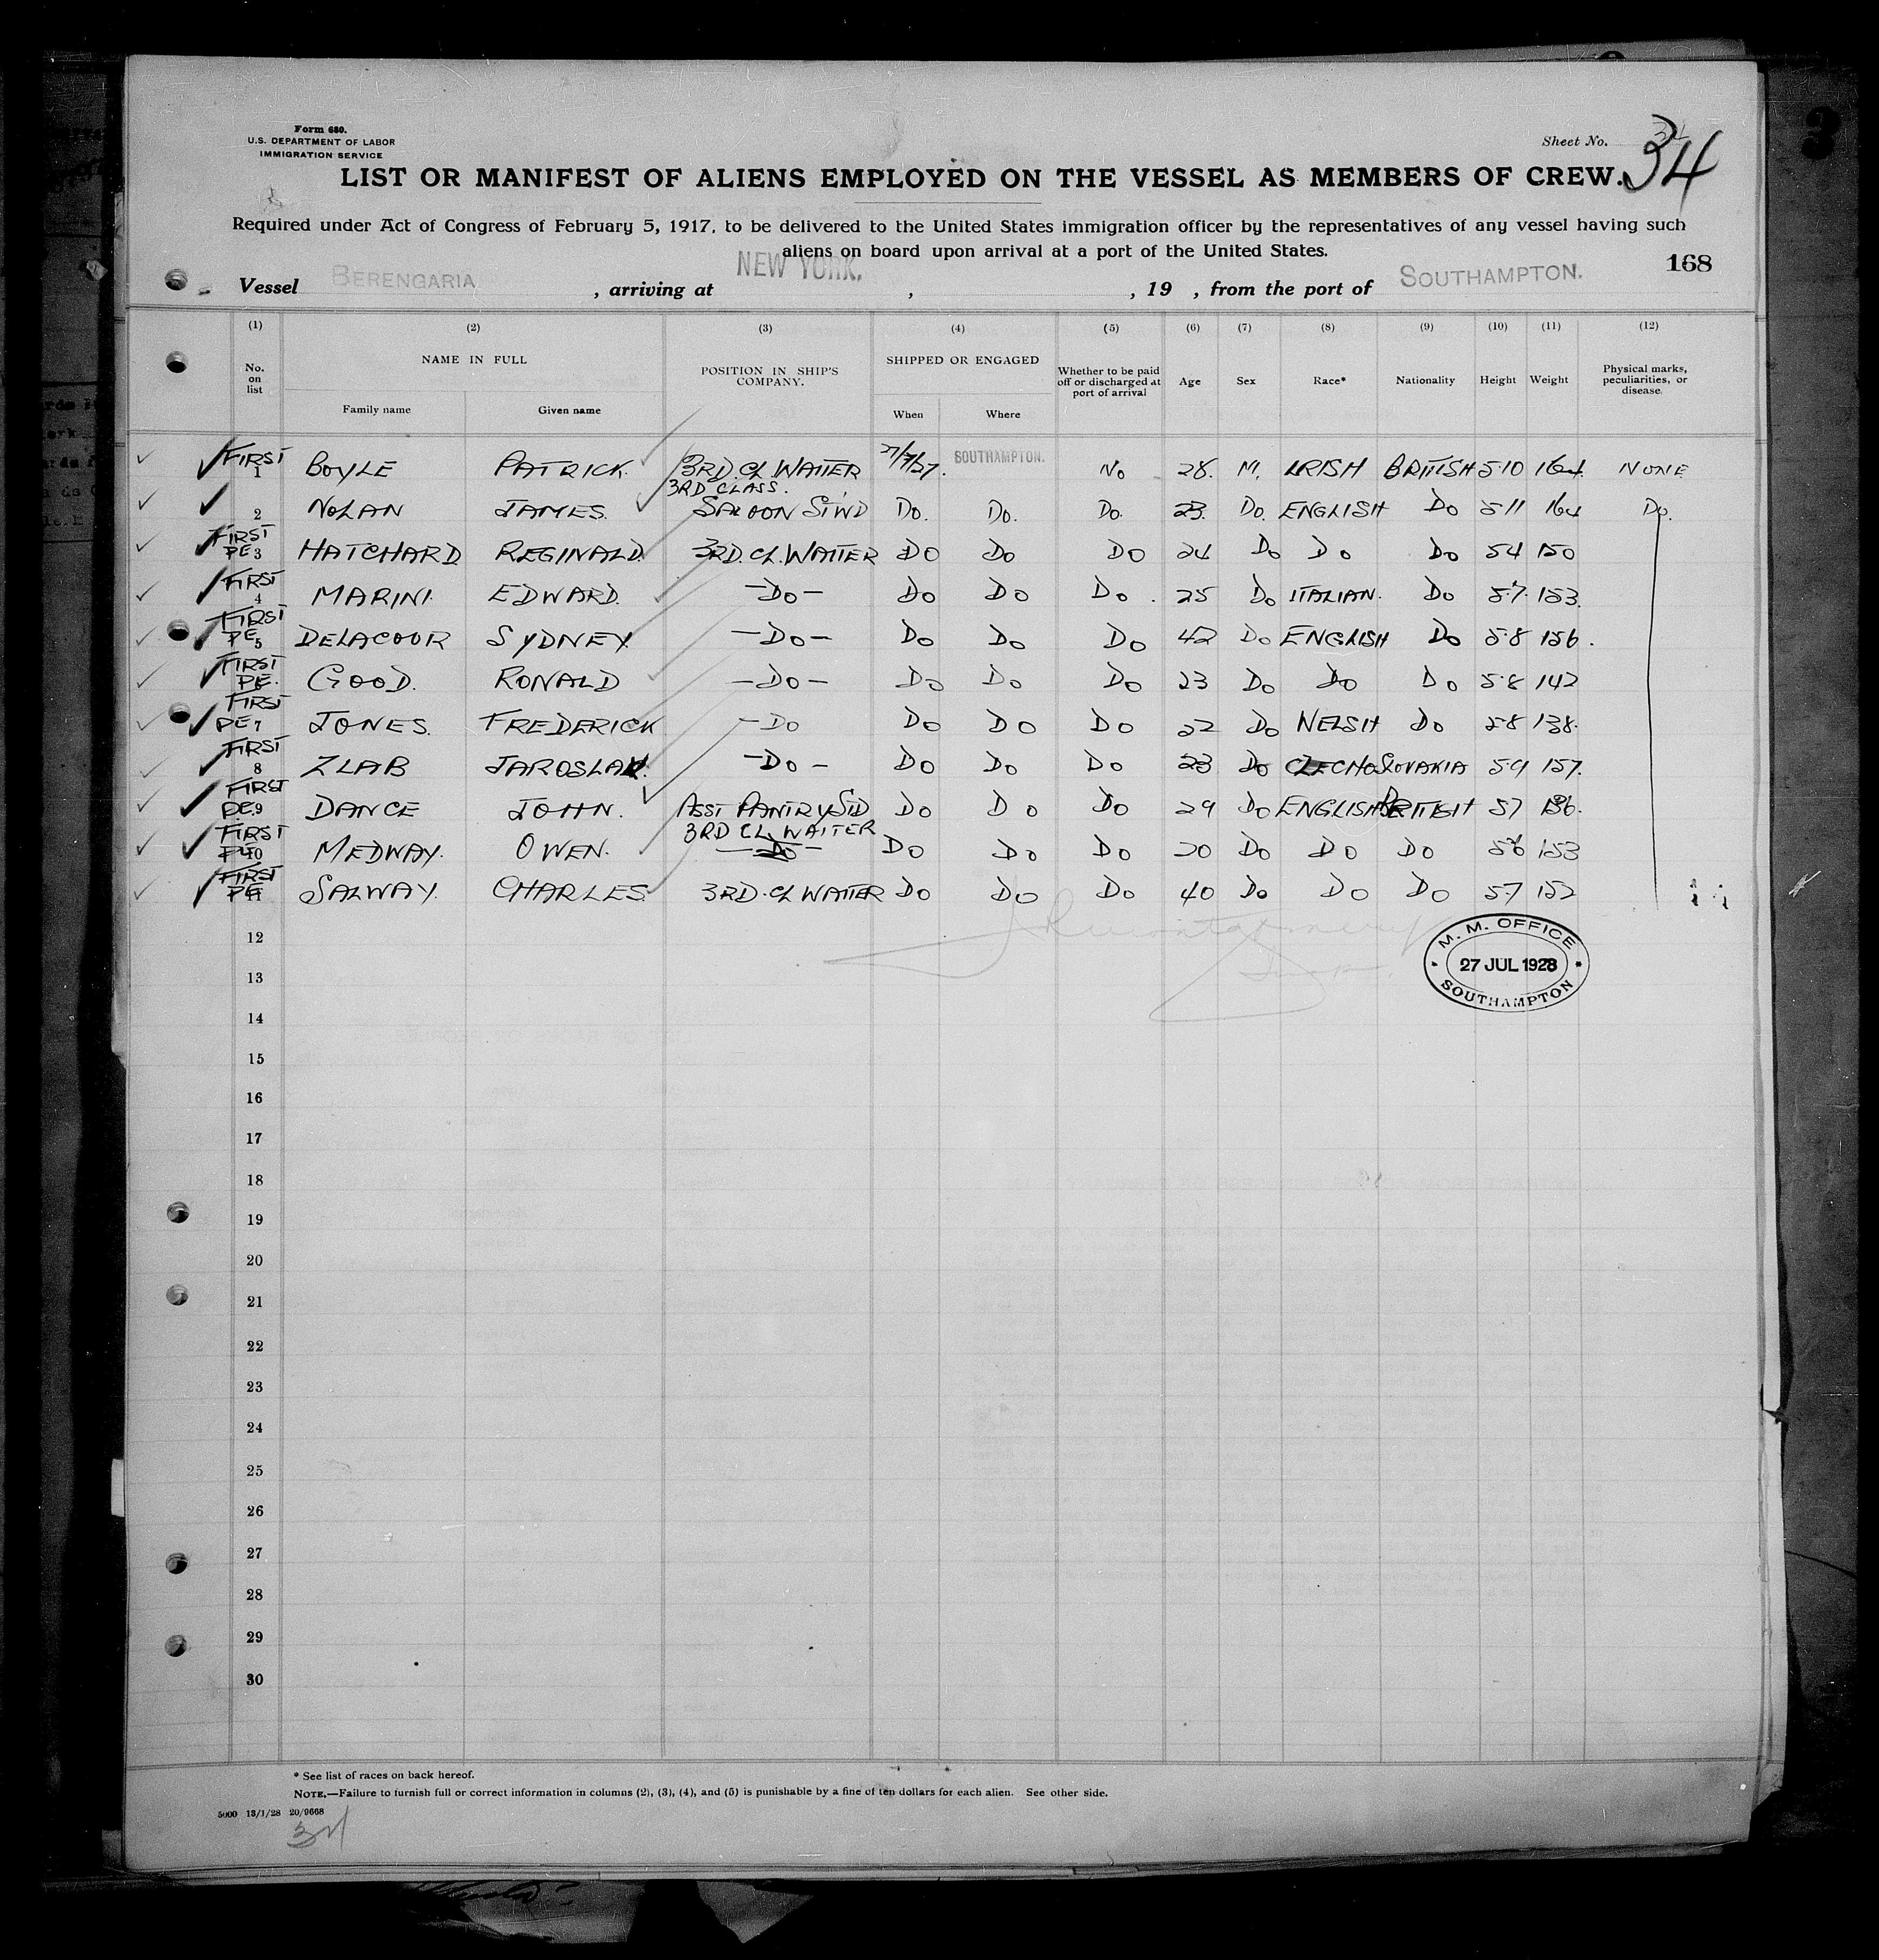 Form 680.
U.S. DEPARTMENT OF LABOR
IMMIGRATION SERVICE
Sheet No. 34
LIST OR MANIFEST OF ALIENS EMPLOYED ON THE VESSEL AS MEMBERS OF CREW.
Required under Act of Congress of February 5, 1917, to be delivered to the United States immigration officer by the representatives of any vessel having such
aliens on board upon arrival at a port of the United States.
168
Vessel BERENGARIA, arriving at NEW YORK, , 19 , from the port of SOUTHAMPTON.
(1) (2) (3) (4) (5) (6) (7) (8) (9) (10) (11) (12)
No. on list NAME IN FULL POSITION IN SHIP'S COMPANY. SHIPPED OR ENGAGED Whether to be paid off or discharged at port of arrival Age Sex Race* Nationality Height Weight Physical marks, peculiarities, or disease.
Family name Given name When Where
FIRST 1 BOYLE PATRICK. 3RD. CL. WAITER 27/7/27. SOUTHAMPTON. No 28. M. IRISH BRITISH 5·10 164 NONE
3RD CLASS.
2 NOLAN JAMES. SALOON STWD Do. Do. Do. 23. Do. ENGLISH Do 5·11 164 Do.
FIRST PE 3 HATCHARD REGINALD. 3RD. CL. WAITER Do Do Do 24 Do Do Do 5·4 150
FIRST 4 MARINI. EDWARD. -Do- Do Do Do. 25 Do ITALIAN. Do 5·7. 153.
FIRST PE 5 DELACOUR SYDNEY. -Do- Do Do Do 42 Do ENGLISH Do 5·8 156.
FIRST PE. GOOD. RONALD -Do- Do Do Do 23 Do Do Do 5·8 142
FIRST PE 7 JONES. FREDERICK -Do Do Do Do 22 Do WELSH Do 5·8 138.
FIRST 8 ZLAB JAROSLAV. -Do- Do Do Do 23 Do CZECHOSLOVAKIA 5·9 157.
FIRST PE. 9 DANCE JOHN. ASST PANTRY STD Do Do Do 29 Do ENGLISH BRITISH 5·7 136.
3RD CL WAITER
FIRST PE 10 MEDWAY. OWEN. -Do- Do Do Do 20 Do Do Do 5·6 153
FIRST PE 11 SALWAY. CHARLES. 3RD. CL WAITER Do Do Do 40 Do Do Do 5·7 152
12
M. M. OFFICE
27 JUL 1928
SOUTHAMPTON
13
14
15
16
17
18
19
20
21
22
23
24
25
26
27
28
29
30
* See list of races on back hereof.
NOTE.—Failure to furnish full or correct information in columns (2), (3), (4), and (5) is punishable by a fine of ten dollars for each alien. See other side.
5000 13/1/28 20/9668
34